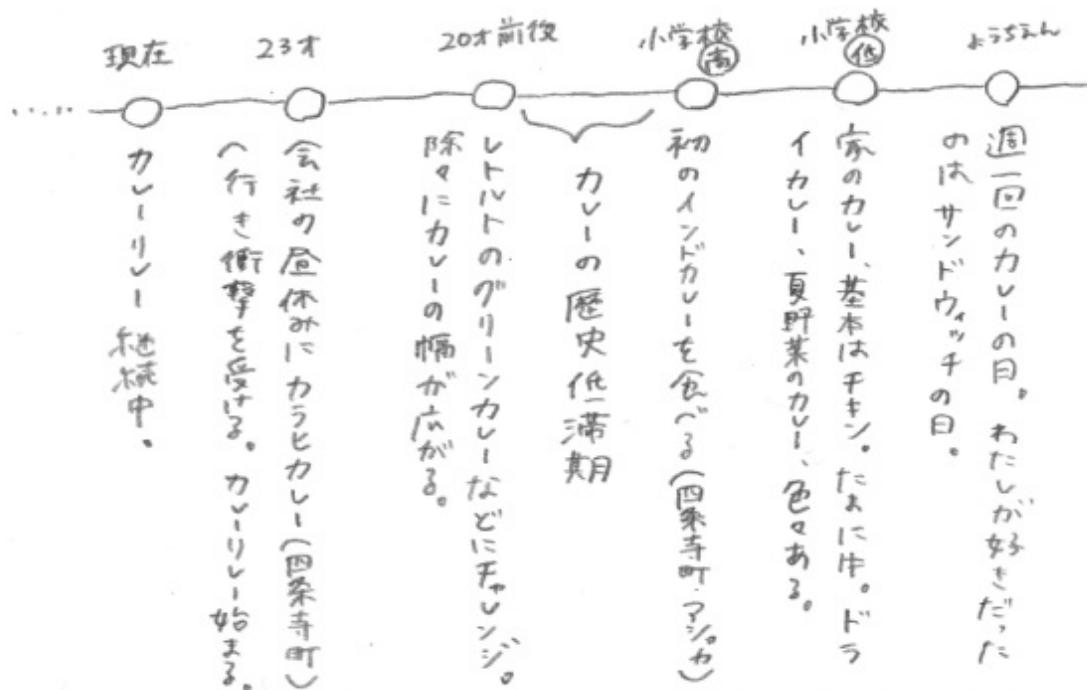 ようちえん
週一回のカレーの日。わたしが好きだった
のはサンドウィッチの日。
小学校
低
家のカレー、基本はチキン。たまに牛。ドラ
イカレー、夏野菜のカレー、色々ある。
小学校
高
初のインドカレーを食べる(四条寺町・アショカ)
カレーの歴史 低滞期
20才前後
レトルトのグリーンカレーなどにチャレンジ。
除々にカレーの幅が広がる。
23才
会社の昼休みにカラヒカレー(四条寺町)
へ行き衝撃を受ける。カレーリレー始まる。
現在
カレーリレー継続中。